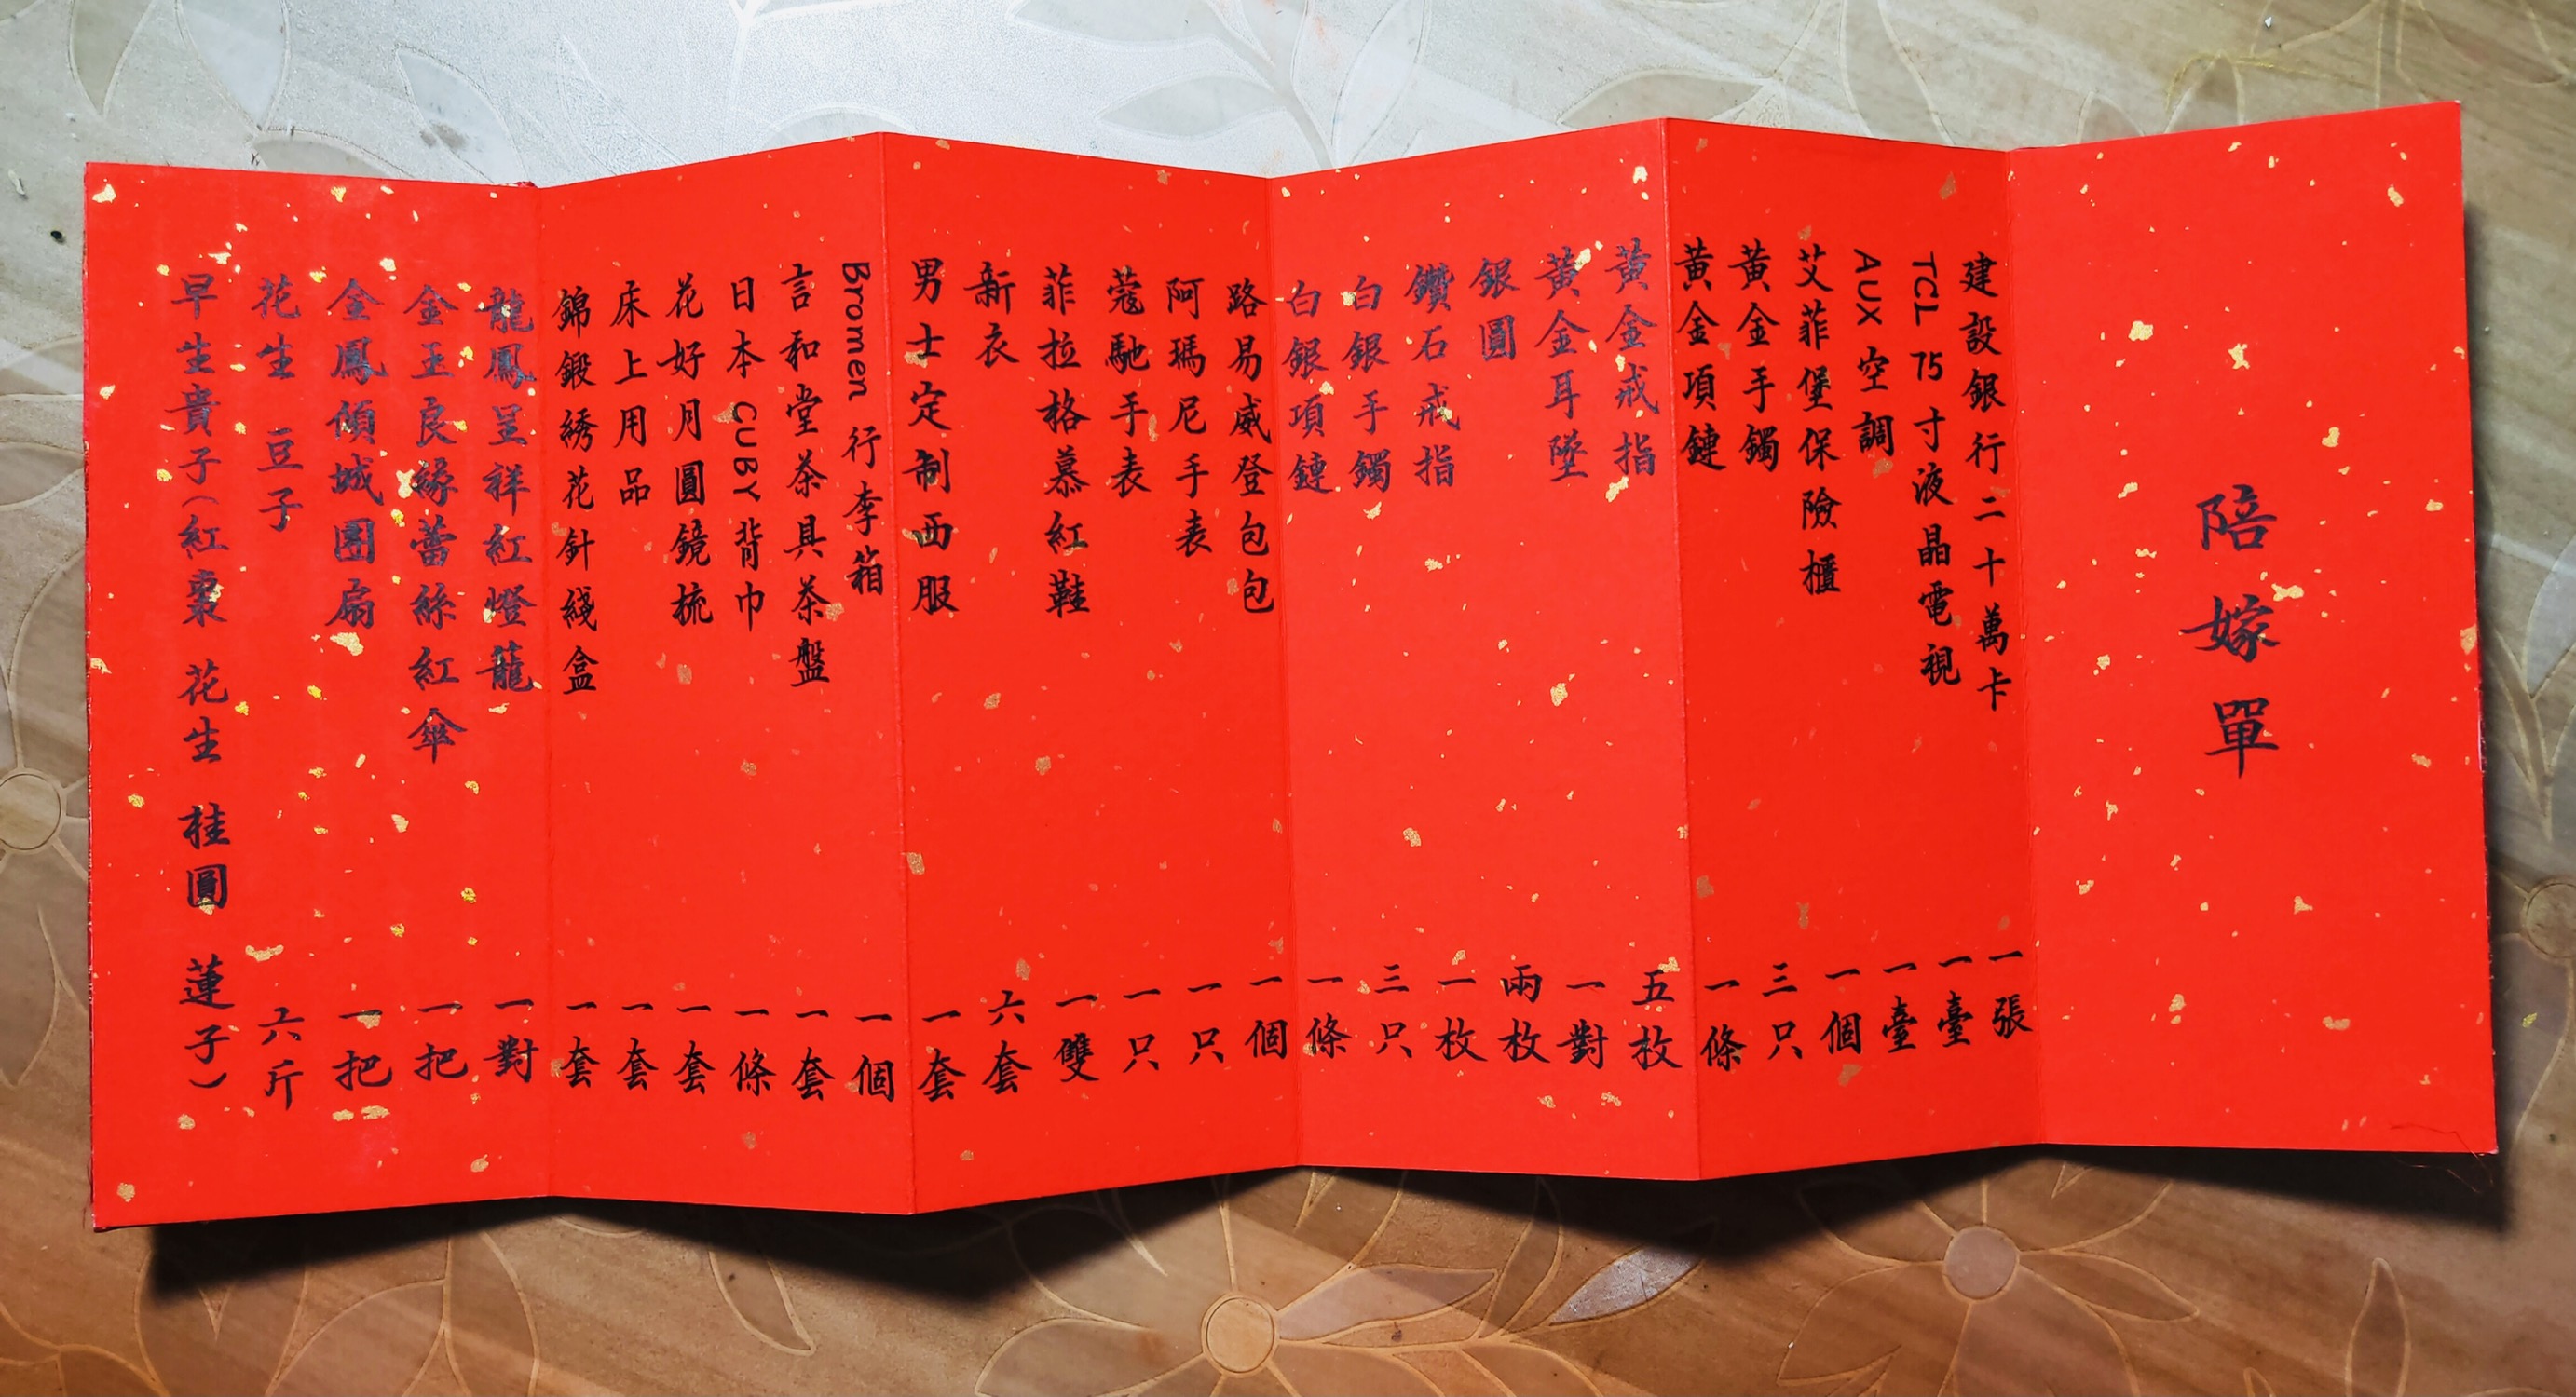 陪嫁單
建設銀行二十萬卡 一張
TCL 75寸液晶電視 一臺
AUX空調 一臺
艾菲堡保險櫃 一個
黃金手鐲 三只
黃金項鏈 一條
黃金戒指 五枚
黃金耳墜 一對
銀圓 兩枚
鑽石戒指 一枚
白銀手鐲 三只
白銀項鏈 一條
路易威登包包 一個
阿瑪尼手表 一只
蔻馳手表 一只
菲拉格慕紅鞋 一雙
新衣 六套
男士定制西服 一套
Bromen 行李箱 一個
言和堂茶具茶盤 一套
日本CUBY背巾 一條
花好月圓鏡梳 一套
床上用品 一套
錦鍛綉花針綫盒 一套
龍鳳呈祥紅燈籠 一對
金玉良緣蕾絲紅傘 一把
金鳳傾城團扇 一把
花生 豆子 六斤
早生貴子(紅棗 花生 桂圓 蓮子)